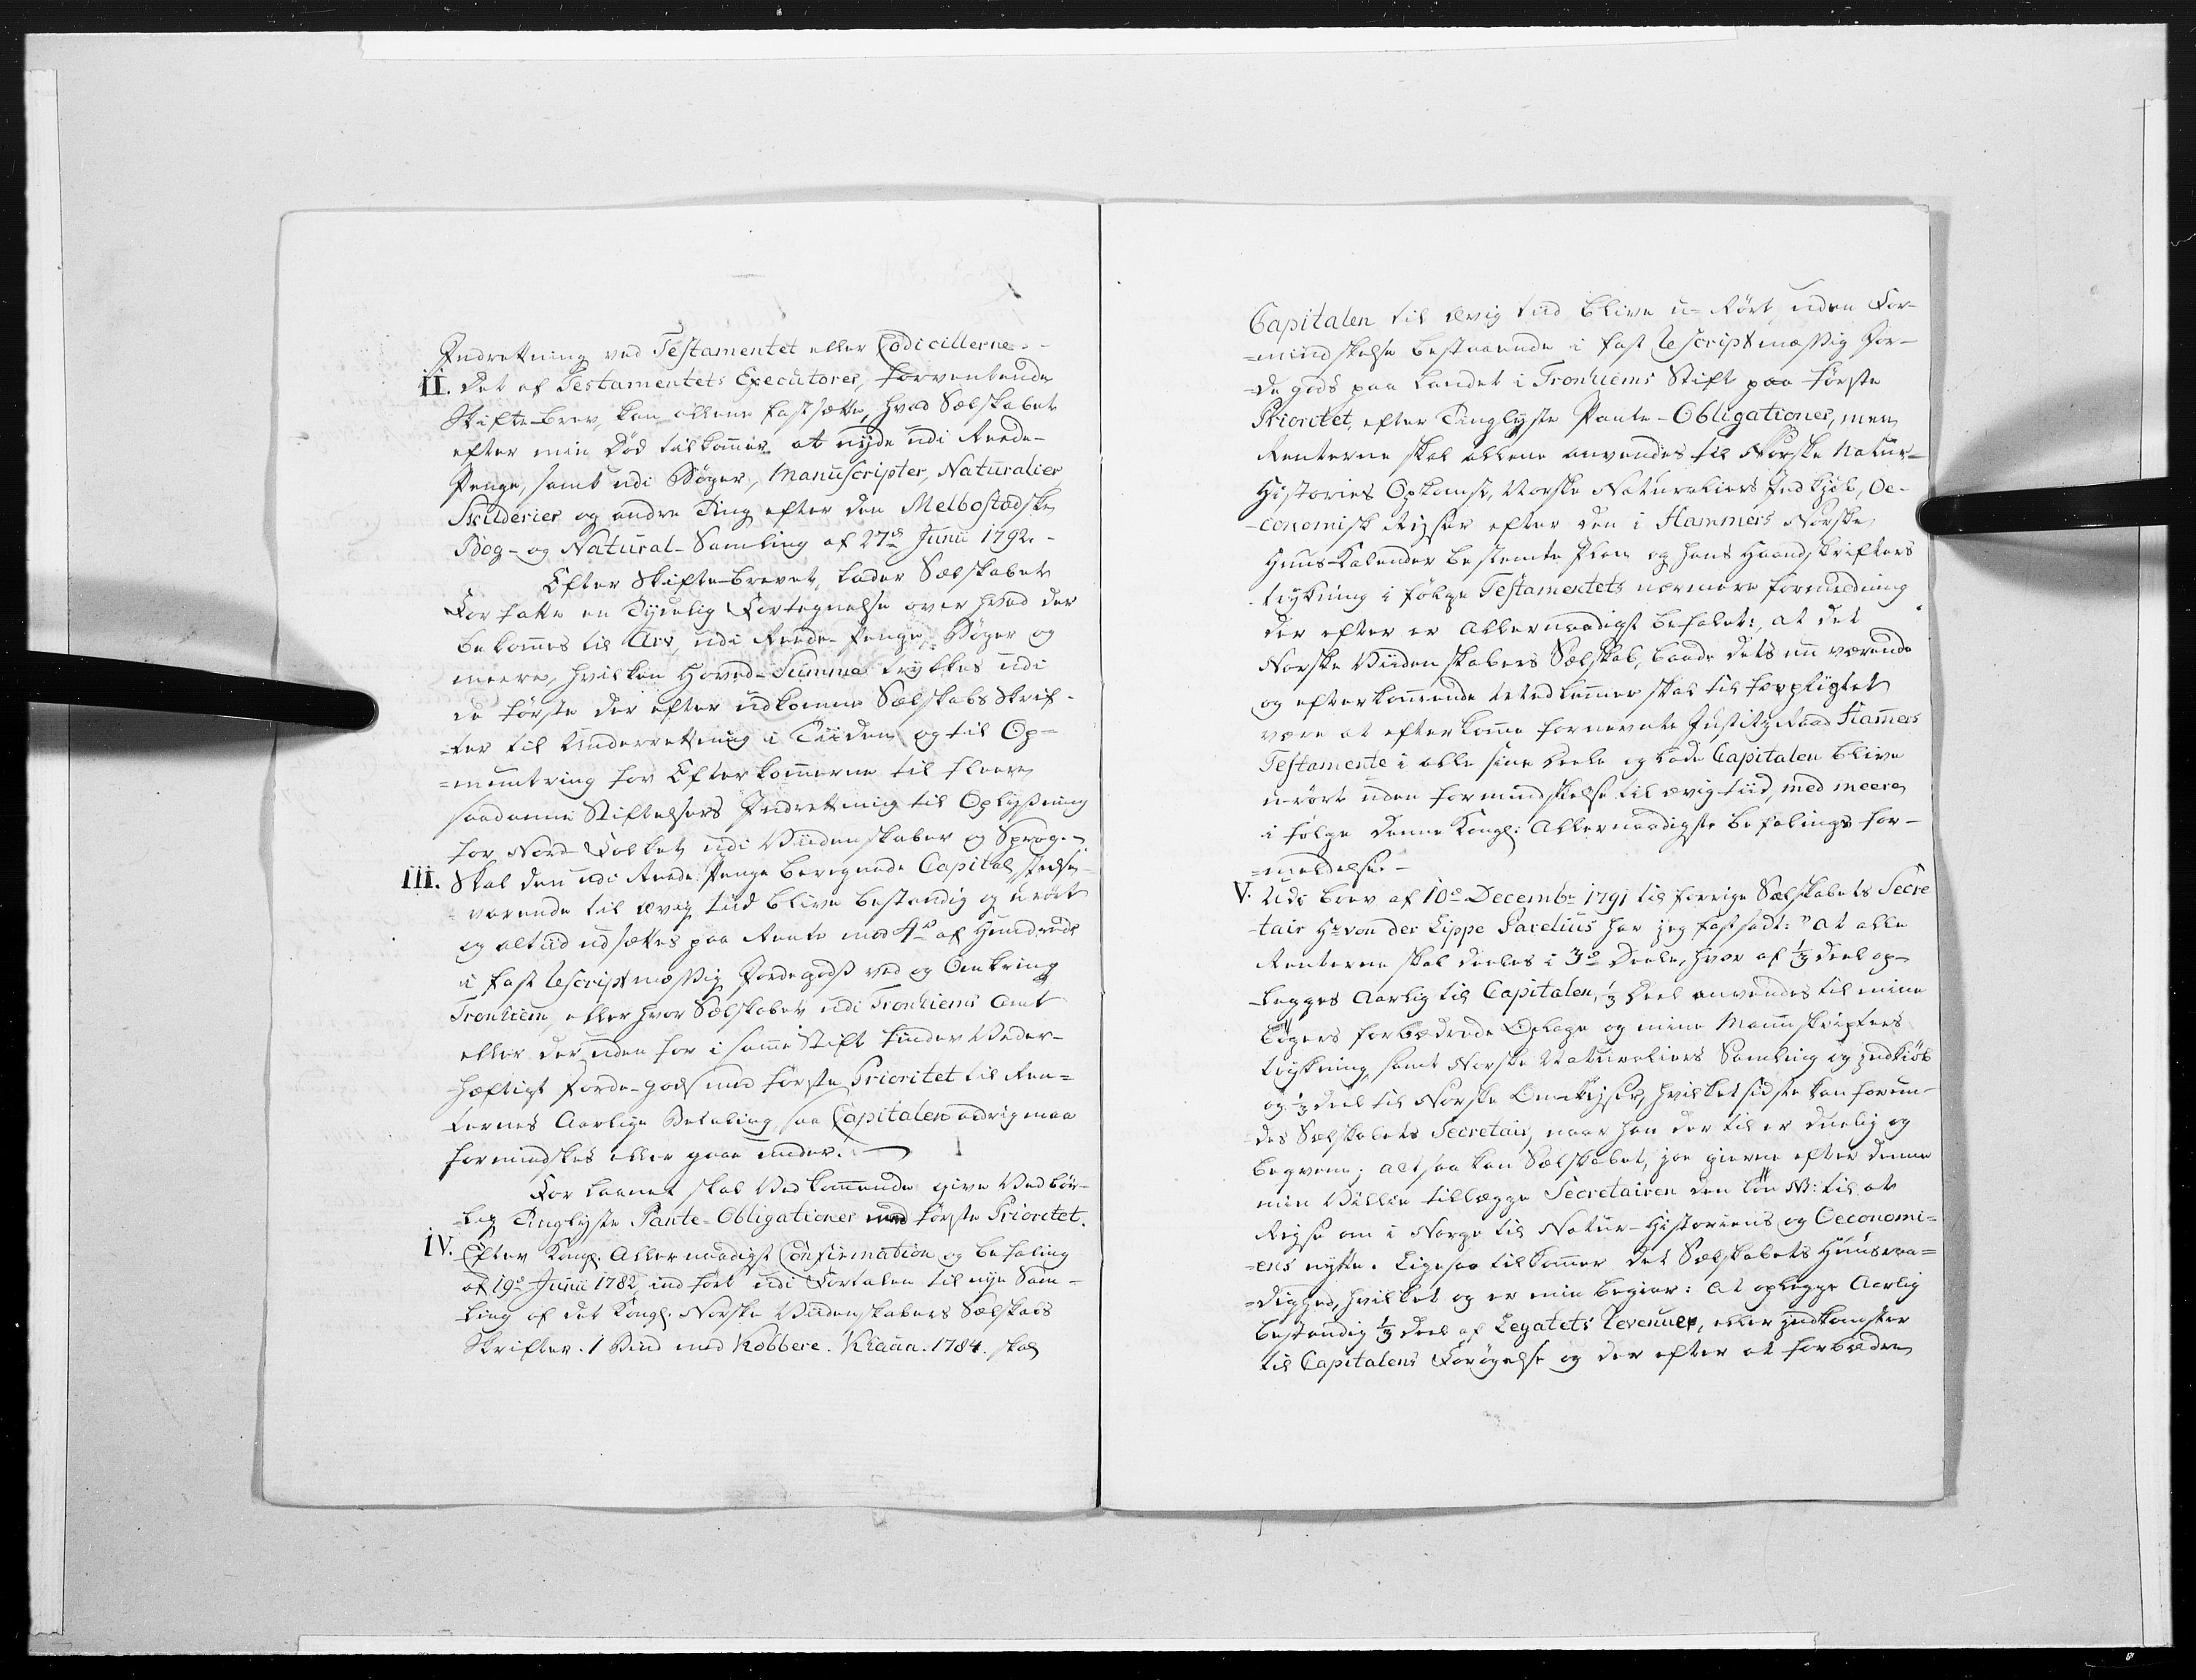 Indretning ved Testamentet eller Codicillerne. -
II. Det af Testamentets Executorer, forventende
Skifte-brev, kan allene fastsætte, hvad Sælskabet
efter min Død tilkommer at nyde udi Reede-
Penge, samt udi Bøger, Manuscripter, Naturalier
Skilderier og andre Ting efter den Melbostadske
Bog- og Natural-Samling af 27de Junii 1792. -
Efter Skifte-brevet, lader Sælskabet
Forfatte en Tydelig Fortegnelse over hvad der
bekommes til Arv, udi Reede-Penge, Bøger og
meere, hvilken Hoved-Summa trykkes udi
de første der efter udkomne Sælskabs Skrif-
-ter til Underretning i Tiiden og til Op-
=muntring for Efterkommerne til fleere
saadanne Stiftelsers Indretning til Oplysning
for Nord-Folket udi Viidenskaber og Sprog. -
III. Skal den udi Reede Penge beregnede Capital stedse-
-varende til ævig tiid blive bestandig og urørt
og altiid udsættes paa Rente med 4re af Hundrede
i fast Rescriptmæssig Jordegods ved og Omkring
Tronhiem, eller hvor Sælskabet udi Tronhiems Amt
eller der uden for i samme Stift finder Veder-
hæftigt Jorde-gods med første Prioritet til Ren=
ternes Aarlige Betaling saa Capitalen aldrig maa
formindskes eller gaae under. -
For Laanet skal Vedkommende give Vedbør-
-lig Tinglyste Pante-Obligationer med første Prioritet.
IV. Efter Kongl. Allernaadigst Confirmation og befaling
af 19de Junii 1782, indført udi Fortalen til nye Sam-
ling af det Kongl. Norske Viidenskabers Sælskabs
Skrifter. 1 Bind med Kobbere. Khavn. 1784. skal
Capitalen til ævig tiid blive u-rørt uden For-
=mindskelse bestaaende i fast Rescriptmæssig Jor-
-de gods paa Landet i Tronhiems Stift paa første
Prioritet, efter Tinglyste Pante-Obligationer, men
Renterne skal allene anvendes til Norske Natur-
Histories Opkomst, Norske Naturaliers Indkjøb, Oe-
-conomisk Rejser efter den i Hammers Norske
Huus-Kalender bestemte Plan og hans Haandskrifters
trykning i følge Testamentets nærmere formeldning
der efter er Allernaadigst befalet: at det
Norske Viidenskabers Sælskab, baade dets nu værende
og efterkommende Medlemmer skal til forpligtet
være at efterkomme fornævnte Justitz Raad Hammers
Testamente i alle sine Deele og lade Capitalen blive
u-rørt uden formindskelse til ævig tiid, med meere
i følge denne Kongl: Allernaadigste befalings for-
=meldelse. -
V. Udi brev af 10de Decembr 1791 til forrige Sælskabets Secre
-tair Hr von der Lippe Parelius har jeg fastsadt: "at alle
Renterne skal deeles i 3de Deele, hvor af 1/3 deel op-
-legges Aarlig til Capitalen, 1/3 Deel anvendes til mine
Bøgers forbædrede Oplage og mine Manuskripters
trykning, samt Norske Naturaliers Samling og Indkiøb
og 1/3 deel til Norske Om-Rejser, hvilket sidste kan forun-
des Sælskabets Secretair, naar han der til er duelig og
beqvem; altsaa kan Sælskabet, joe gierne efter denne
min Villie tillægge Secretairen den løn NB: til at
Rejse om i Norge til Natur-Historiens og Oeconomi=
-ens nytte. Ligesaa tilkommer det Sælskabets Huusraa=
=dighed, hvilket og er min begiær: at oplegge Aarlig
bestandig 1/3 deel af Legatets Revenuer, eller Indkomster
til Capitalens Forøgelse og der efter at forbædre